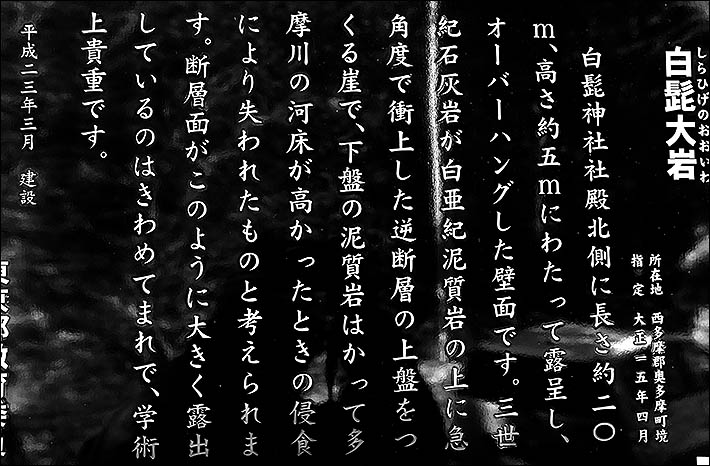 しらひげのおおいわ
白髭大岩
所在地 西多摩郡奥多摩町境
指定 大正一五年四月
白髭神社社殿北側に長さ約二〇
m、高さ約五mにわたって露呈し、
オーバーハングした壁面です。三世
紀石灰岩が白亜紀泥質岩の上に急
角度で衝上した逆断層の上盤をつ
くる崖で、下盤の泥質岩はかって多
摩川の河床が高かったときの侵食
により失われたものと考えられま
す。断層面がこのように大きく露出
しているのはきわめてまれで、学術
上貴重です。
平成二三年三月 建設